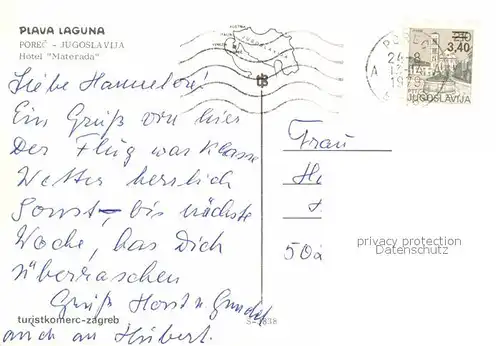 PLAVA LAGUNA
POREČ - JUGOSLAVIJA
Hotel "Materada"
Liebe Hannelore!
Ein Gruß von hier
Der Flug war Klasse
Wetter herrlich
Sonst, bis nächste
Woche, lass Dich
überraschen
Gruß Horst u. Gundel
auch an Hubert.
turistkomerc-zagreb
JUGOSLAVIJA
POREČ
24-8
1979
A
2,10
3,40
JUGOSLAVIJA
Frau
50
privacy protection
Datenschutz